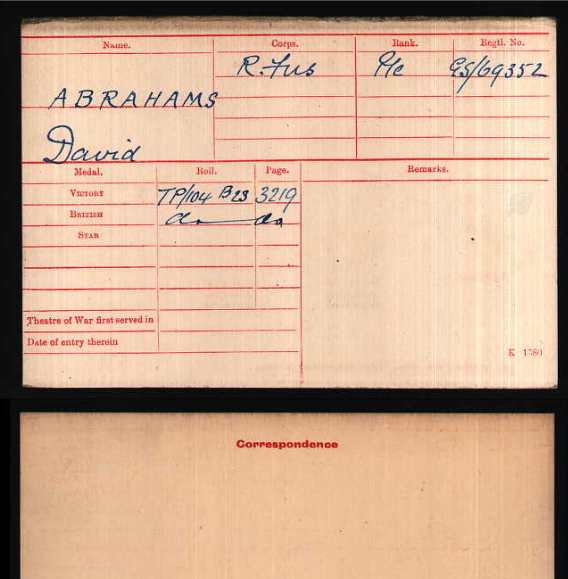 Name. Corps. Rank. Regtl. No.
R. Fus Pte GS/69352
ABRAHAMS
David
Medal. Roll. Page. Remarks.
VICTORY TP/104 B23 3219
BRITISH do do
STAR
Theatre of War first served in
Date of entry therein
K 1380
Correspondence